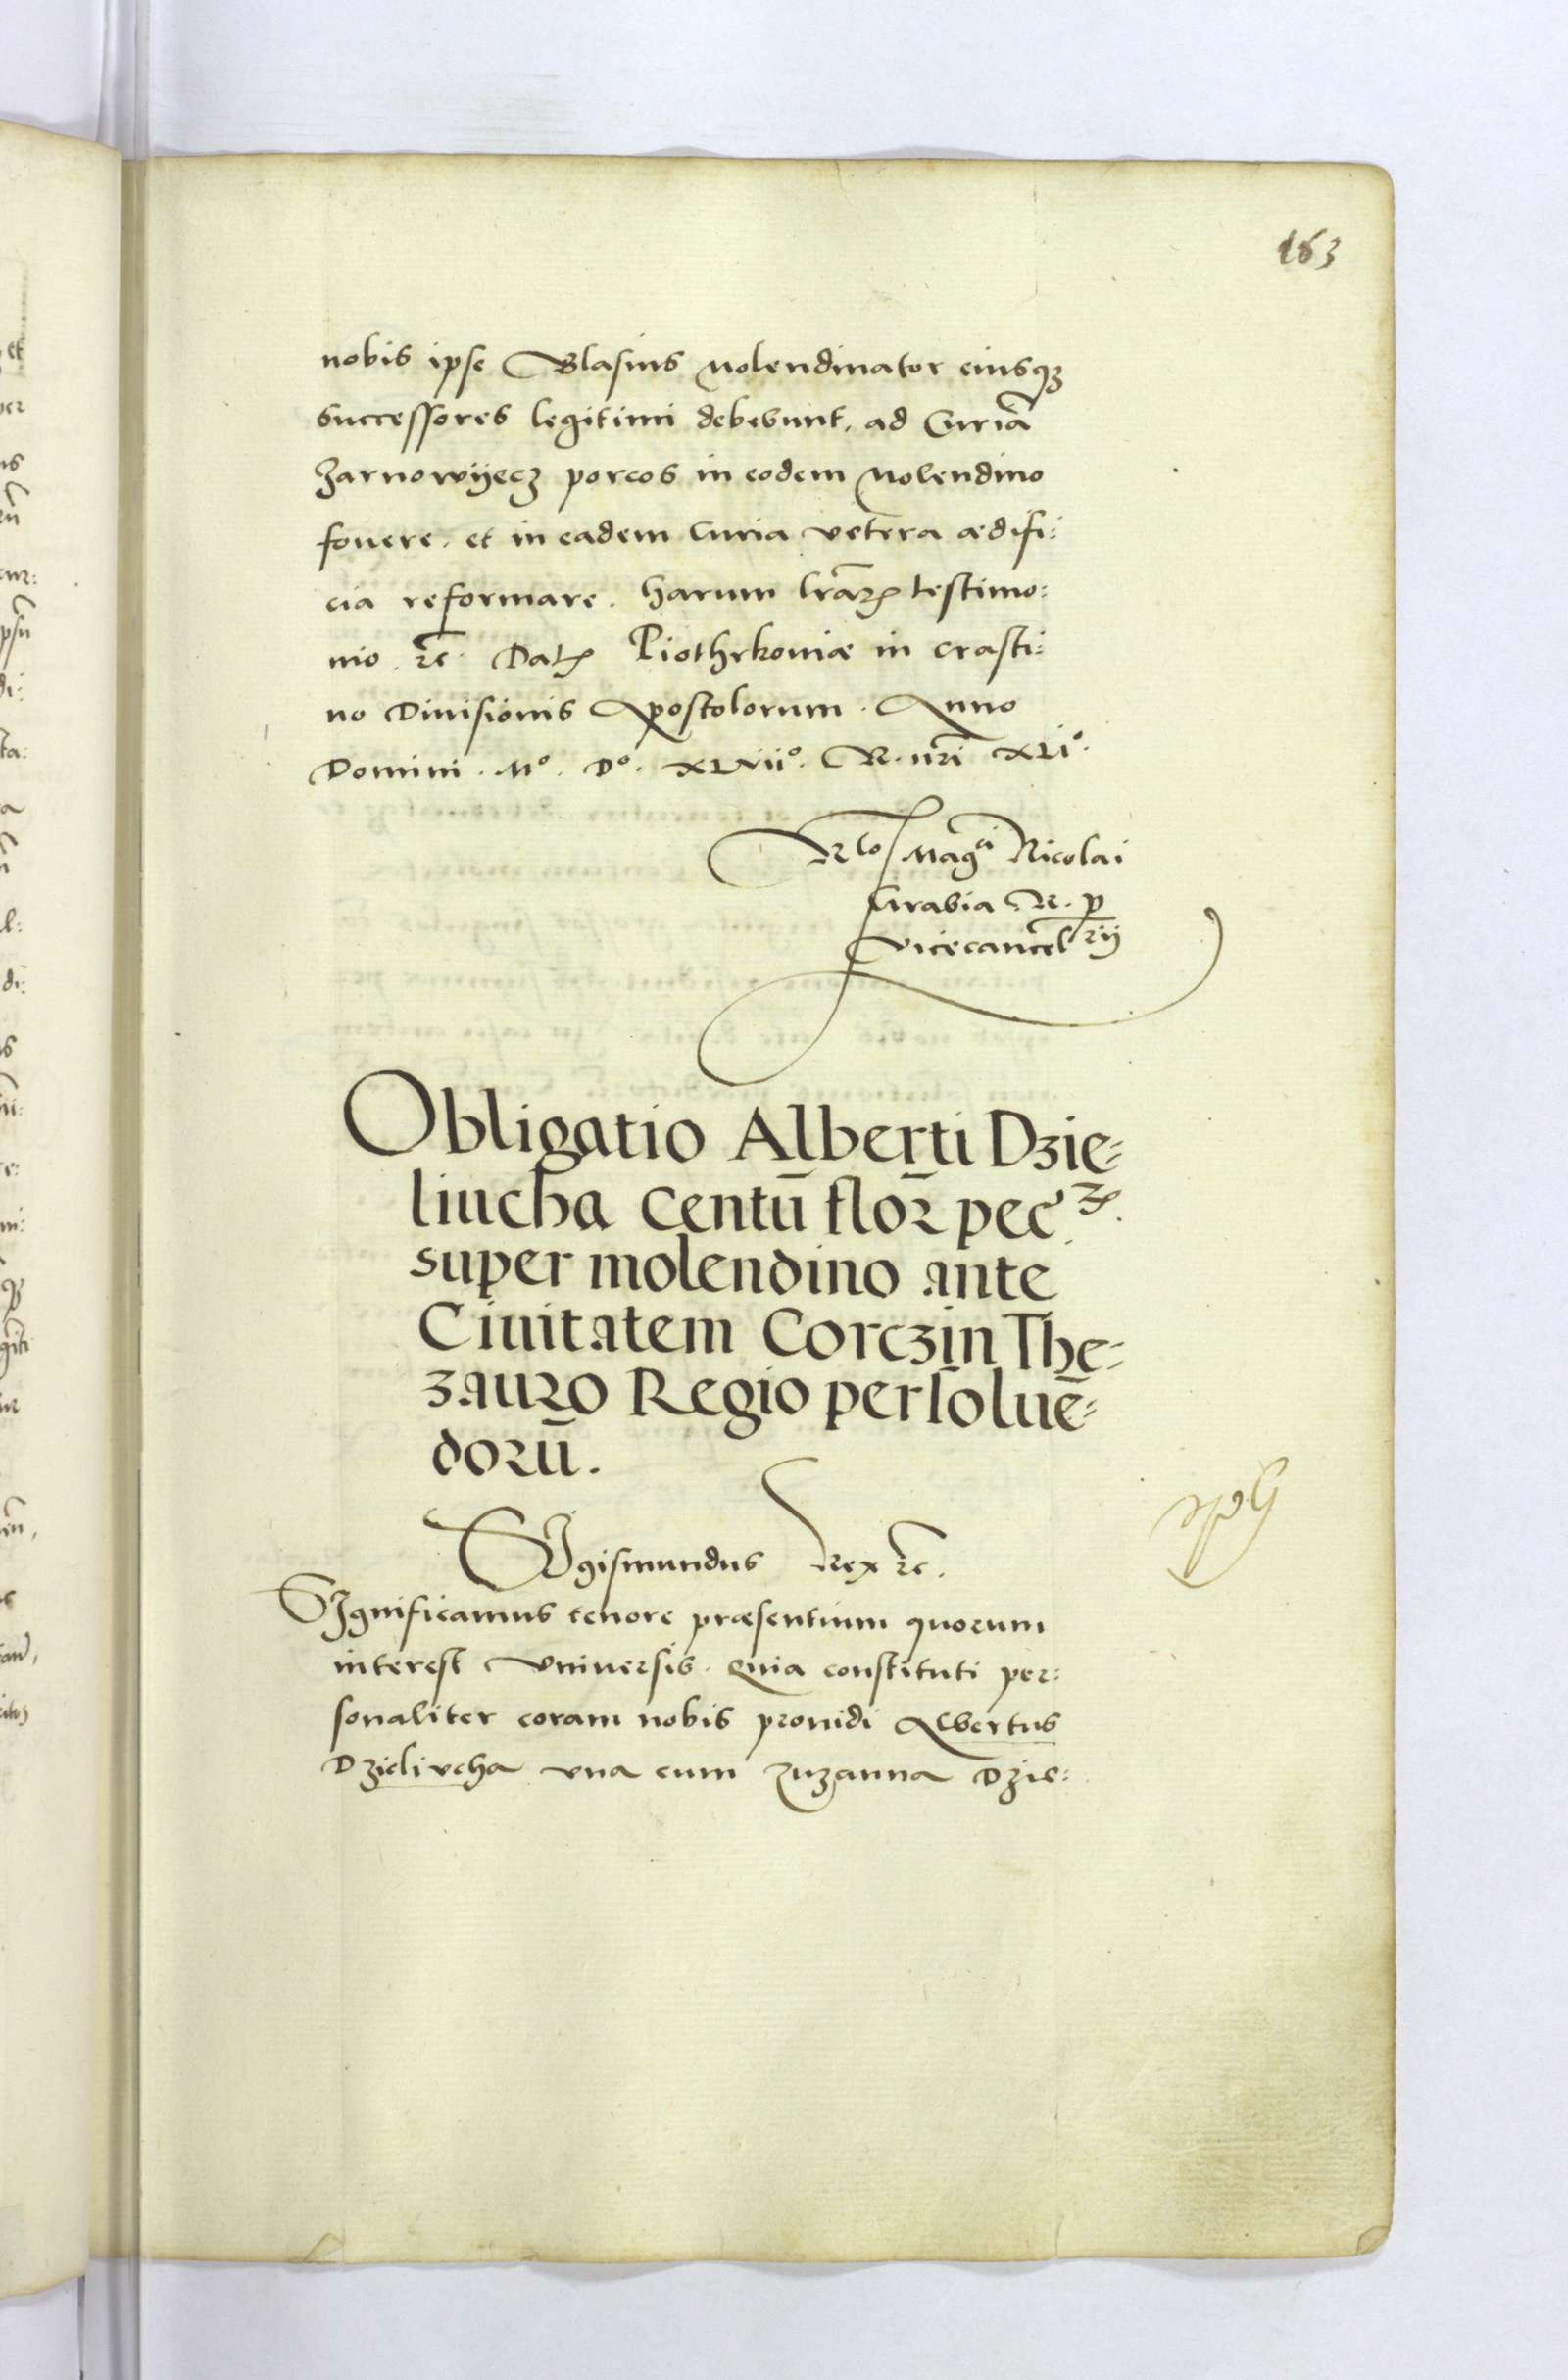 163
nobis ipse Blasius Molendinator eiusqꝫ
successores legitimi debebunt. ad Curiã
Zarnowijecz porcos in eodem Molendino
fouere. et in eadem Curia vetera ædifi:
cia reformare. Harum lr̃aꝝ testimo:
nio. ꝛc̃. Datꝝ Piothrkoniæ in crasti:
no Diuisionis Apostolorum. Anno
Domini. Mº. Dº. XLVIIº. R. nr̃i XLIº.
Rlo Magci Nicolai
Grabia R. p̱
Vicecancelrij
Obligatio Alberti Dzie:
liucha Centũ floꝛ̃ pecꝝ.
super molendino ante
Ciuitatem Corczin The:
zauro Regio persoluẽ:
dorũ.
SIgismundus Rex ꝛc̃.
SIgnificamus tenore præsentium quorum
interest Vniuersis. Quia constituti per:
sonaliter coram nobis prouidi Albertus
Dzieliucha vna cum Zuzanna Dzie: